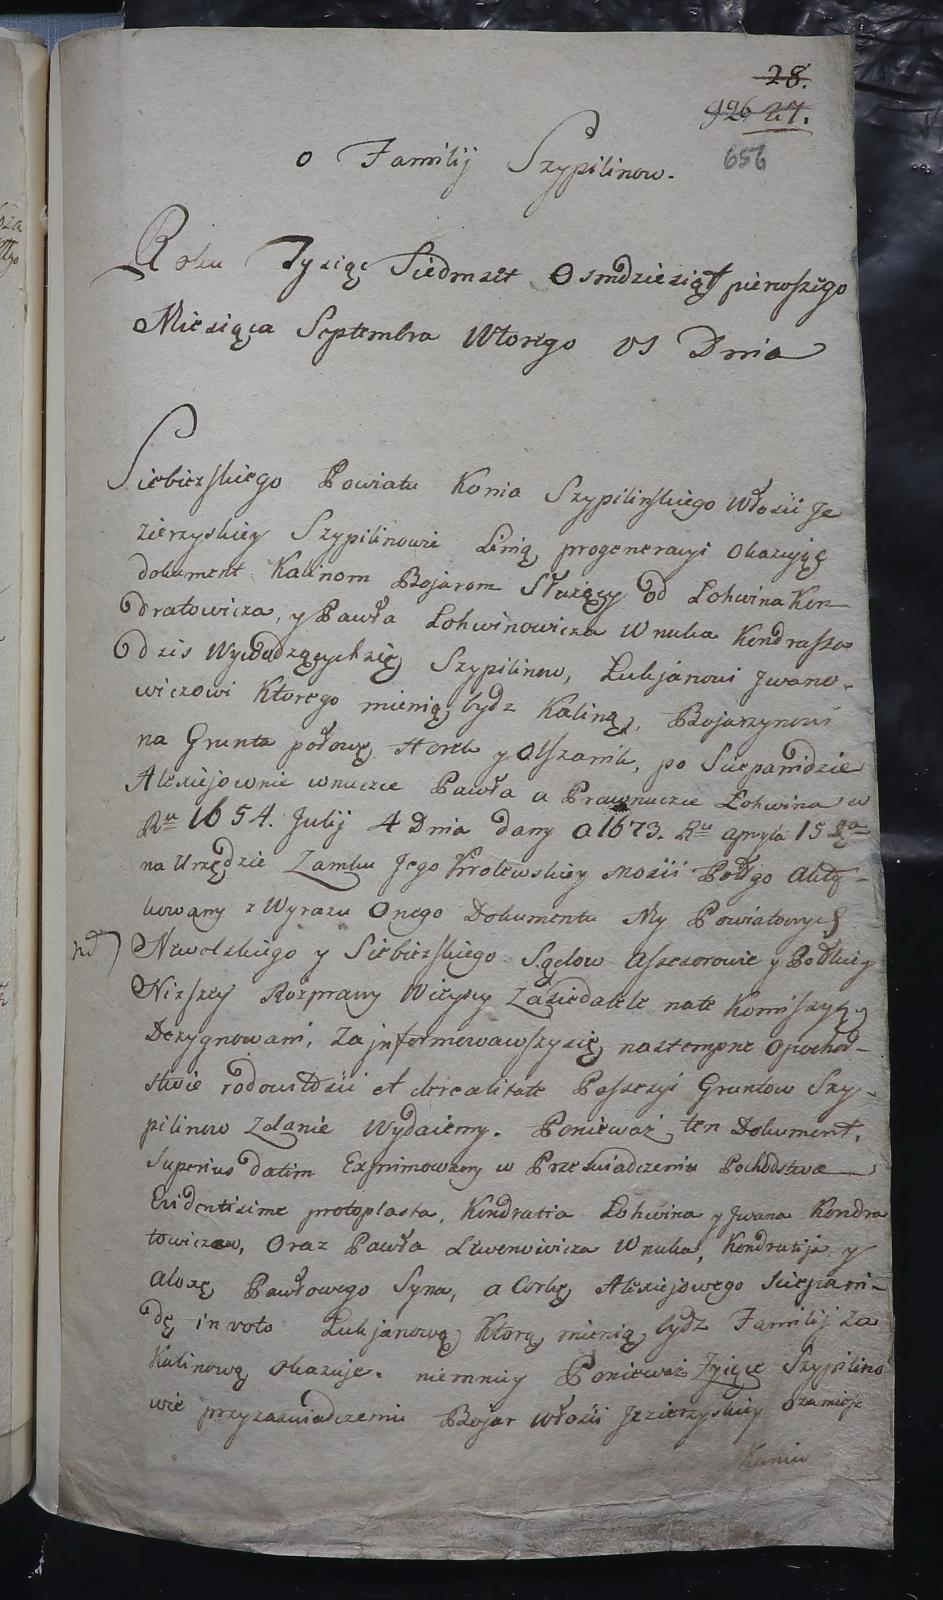 28.
926 27.
656
o Familij Szypilinow.
Roku Tysiąc Siedmset Osmdziesiąt pierwszego
Miesiąca Septembra Wtorego VS Dnia
Siebierskiego Powiatu Konia Szypilinskiego Włosći Je
zierzyskiey Szypilinowie Linią progeneracyi Okazuiąc
dokument Kalinom Bojarom Służący od Łohwina Kon-
dratowicza, y Pawła Łohwinowicza Wnuka Kondrasza
Odzis Wywodzących się Szypilinow, Łukjanowi Jwano-
wiczowi Ktorego mienią bydz Kaliną, Bojarzynowi
na Grunta połowę Horek y Olszanik, po Sciepanidzie
Alexiejownie wnuczce Pawła a Prawnuczce Łohwina w
Ru 1654. Julij 4 Dnia dany a 1673. Ru apryla 15 Da
na Urzędzie Zamku Jego Krolewskiey Mosći Połłgo Akty-
kowany z Wyrazu Onego Dokumentu My Powiatowych
Newelskiego y Siebierskiego Sądow Assessorowie y Połłkiey
Nizszey Rozprawy Wieyscy Zasiedatele na te Komissyą
Dezygnowani, Zainformowawszy się nastempne O pochod-
stwie rodowitosci et de realitate Possessyi Gruntow Szy-
pilinow Zdanie Wydaiemy. Ponieważ ten Dokument,
Superius datim Exprimowany w Przeswiadczeniu Pochodstwa
Evidentisime protoplasta, Kondratia Łohwina y Jwana Kondra
towiczow, Oraz Pawła Łewonowicza Wnuka, Kondratija y
Aloxę Pawłowego Syna, a Corkę Alexiejowego Sciepani-
dę in voto Łukjanową Ktorą mienią bydz Familij Za
Kalinową skazuje. niemniey Ponieważ Żyiące Szypilino
wie przyzaswiadczeniu Bojar włosći Jezierzyskiey Ozamiesz
Kaniu